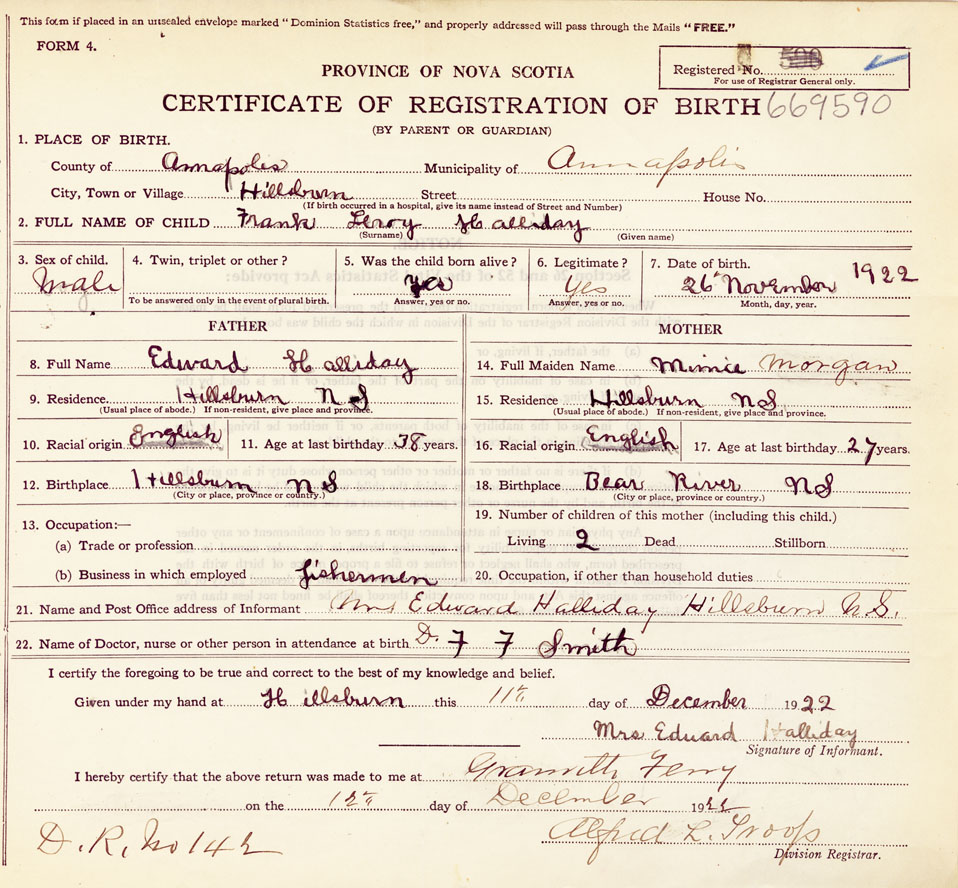 This form if placed in an unsealed envelope marked "Dominion Statistics free," and properly addressed will pass through the Mails "FREE."
FORM 4.
PROVINCE OF NOVA SCOTIA
Registered No. 590
For use of Registrar General only.
CERTIFICATE OF REGISTRATION OF BIRTH 669590
(BY PARENT OR GUARDIAN)
1. PLACE OF BIRTH.
County of Annapolis Municipality of Annapolis
City, Town or Village Hillsburn Street House No.
(If birth occurred in a hospital, give its name instead of Street and Number)
2. FULL NAME OF CHILD Frank Leroy Halliday
(Surname) (Given name)
3. Sex of child. 4. Twin, triplet or other? 5. Was the child born alive? 6. Legitimate? 7. Date of birth.
Male yes Yes 26 November 1922
To be answered only in the event of plural birth. Answer, yes or no. Answer, yes or no. Month, day, year.
FATHER MOTHER
8. Full Name Edward Halliday 14. Full Maiden Name Minnie Morgan
9. Residence. Hillsburn NS 15. Residence Hillsburn NS
(Usual place of abode.) If non-resident, give place and province. (Usual place of abode.) If non-resident, give place and province.
10. Racial origin English 11. Age at last birthday 38 years. 16. Racial origin English 17. Age at last birthday 27 years.
12. Birthplace Hillsburn NS 18. Birthplace Bear River NS
(City or place, province or country.) (City or place, province or country.)
13. Occupation:— 19. Number of children of this mother (including this child.)
(a) Trade or profession Living 2 Dead Stillborn
(b) Business in which employed fishermen 20. Occupation, if other than household duties
21. Name and Post Office address of Informant Mrs Edward Halliday Hillsburn N.S.
22. Name of Doctor, nurse or other person in attendance at birth D. F F Smith
I certify the foregoing to be true and correct to the best of my knowledge and belief.
Given under my hand at Hillsburn this 11th day of December 1922
Mrs Edward Halliday
Signature of Informant.
I hereby certify that the above return was made to me at Granville Ferry
on the 12th day of December 1922
D. R. No 142 Alfred L. Troops
Division Registrar.